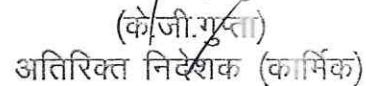 (के.जी.गुप्ता)
अतिरिक्त निदेशक (कार्मिक)